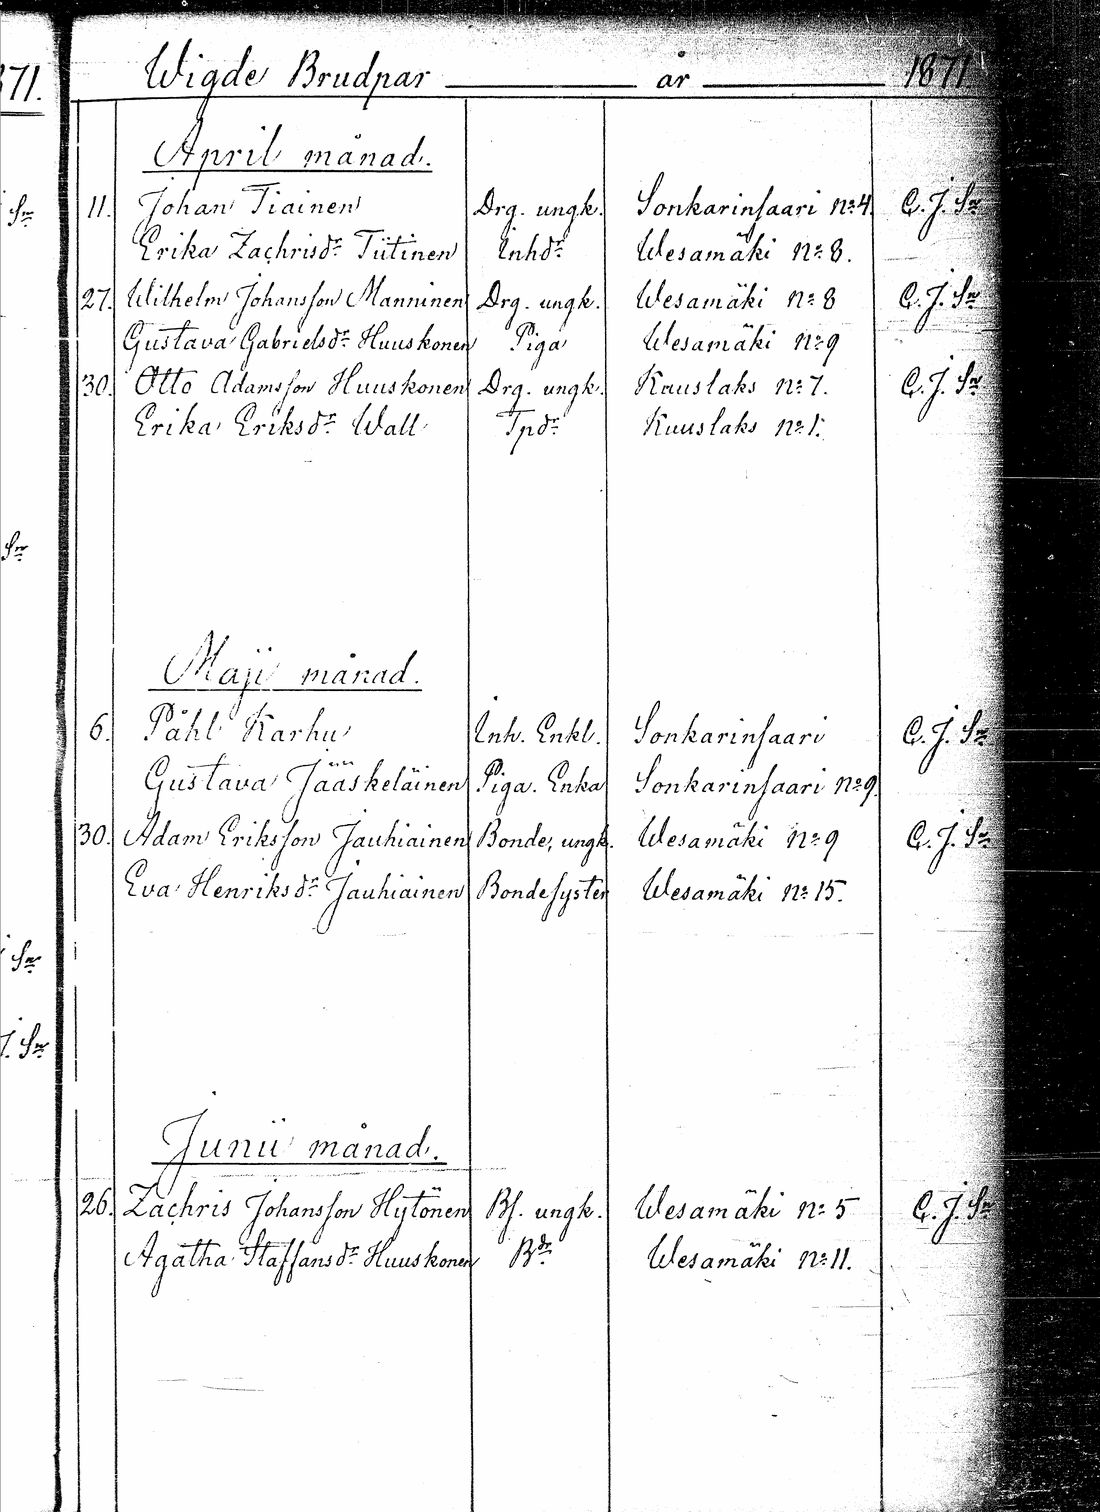 871.
Wigde Brudpar år 1871.
April månad.
Sr 11. Johan Tiainen Drg. ungk. Sonkarinsaari No 4. C. J. Sn
Erika Zachrisdr Tiitinen Inhdr Wesamäki No 8.
27. Wilhelm Johansson Manninen Drg. ungk. Wesamäki No 8 C. J. Sn
Gustava Gabrielsdr Huuskonen Piga Wesamäki No 9
30. Otto Adamsson Huuskonen Drg. ungk. Kuuslaks No 7. C. J. Sn
Erika Eriksdr Wall Tpdr Kuuslaks No 1.
Sn
Maji månad.
6. Påhl Karhu Inh. Enkl. Sonkarinsaari C. J. Sn
Gustava Jääskeläinen Piga. Enka Sonkarinsaari No 9.
30. Adam Eriksson Jauhiainen Bonde, ungk. Wesamäki No 9 C. J. Sn
Eva Henriksdr Jauhiainen Bondesyster Wesamäki No 15.
Sn
J. Sn
Junii månad.
26. Zachris Johansson Hytönen Bs. ungk. Wesamäki No 5 C. J. Sn
Agatha Staffansdr Huuskonen Bdr. Wesamäki No 11.